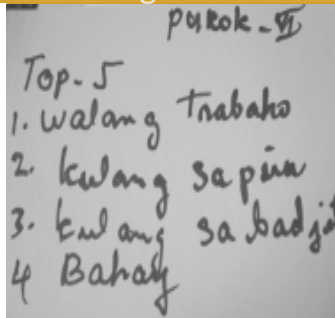 purok-VI
Top-5
1. walang Trabaho
2. kulang sa
3. kulang sa badjit
4 Bahay